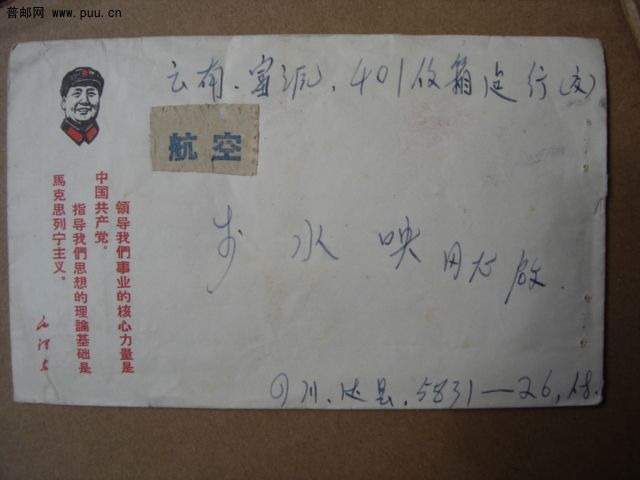 普邮网 www.puu.cn
云南.富源.401信箱
航空
水映同志启.
領导我們事业的核心力量是
中国共产党。
指导我們思想的理論基础是
馬克思列宁主义。
毛泽东
四川.达县.5831—26,信.